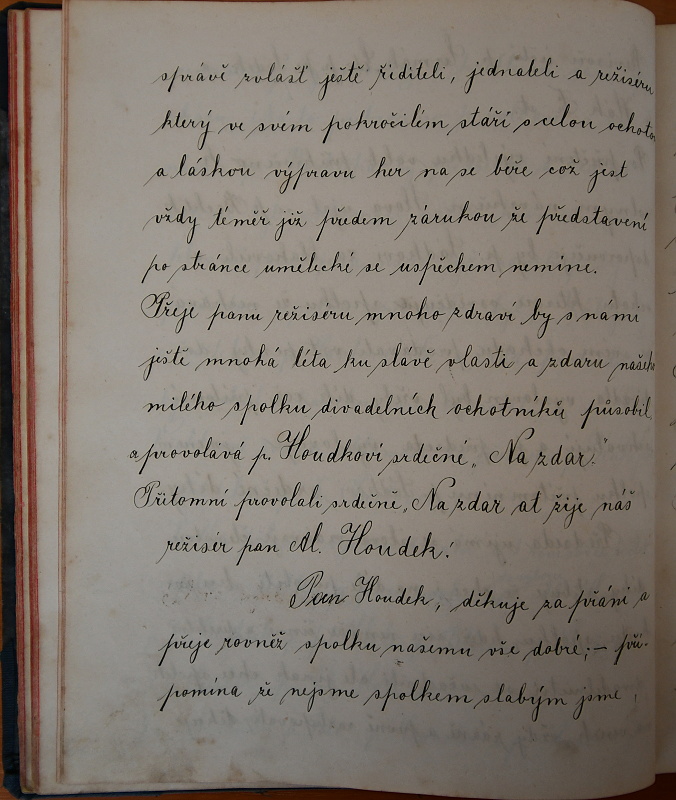 správě zvlášť ještě řiditeli, jednateli a režiséru
který ve svém pokročilém stáří s celou ochotou
a láskou výpravu her na se béře což jest
vždy téměř již předem zárukou že představení
po stránce umělecké se uspěchem nemine.
Přeje panu režiséru mnoho zdraví by s námi
ještě mnohá léta ku slávě vlasti a zdaru našeho
milého spolku divadelních ochotníků působil
a provolává p. Houdkovi srdečné „Na zdar."
Přitomní provolali srdečně „Na zdar ať žije náš
režisér pan Al. Houdek!
Pan Houdek, děkuje za přáni a
přeje rovněž spolku našemu vše dobré; – při-
pomína že nejsme spolkem slabým jsme,